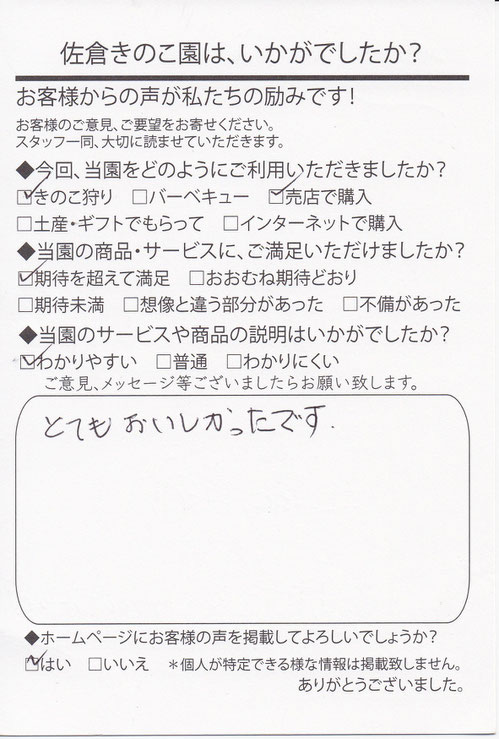 佐倉きのこ園は、いかがでしたか？
お客様からの声が私たちの励みです！
お客様のご意見、ご要望をお寄せください。
スタッフ一同、大切に読ませていただきます。
◆今回、当園をどのようにご利用いただきましたか？
☑きのこ狩り　□バーベキュー　☑売店で購入
□土産・ギフトでもらって　□インターネットで購入
◆当園の商品・サービスに、ご満足いただけましたか？
☑期待を超えて満足　□おおむね期待どおり
□期待未満　□想像と違う部分があった　□不備があった
◆当園のサービスや商品の説明はいかがでしたか？
☑わかりやすい　□普通　□わかりにくい
ご意見、メッセージ等ございましたらお願い致します。
とてもおいしかったです.
◆ホームページにお客様の声を掲載してよろしいでしょうか？
☑はい　□いいえ　＊個人が特定できる様な情報は掲載致しません。
ありがとうございました。